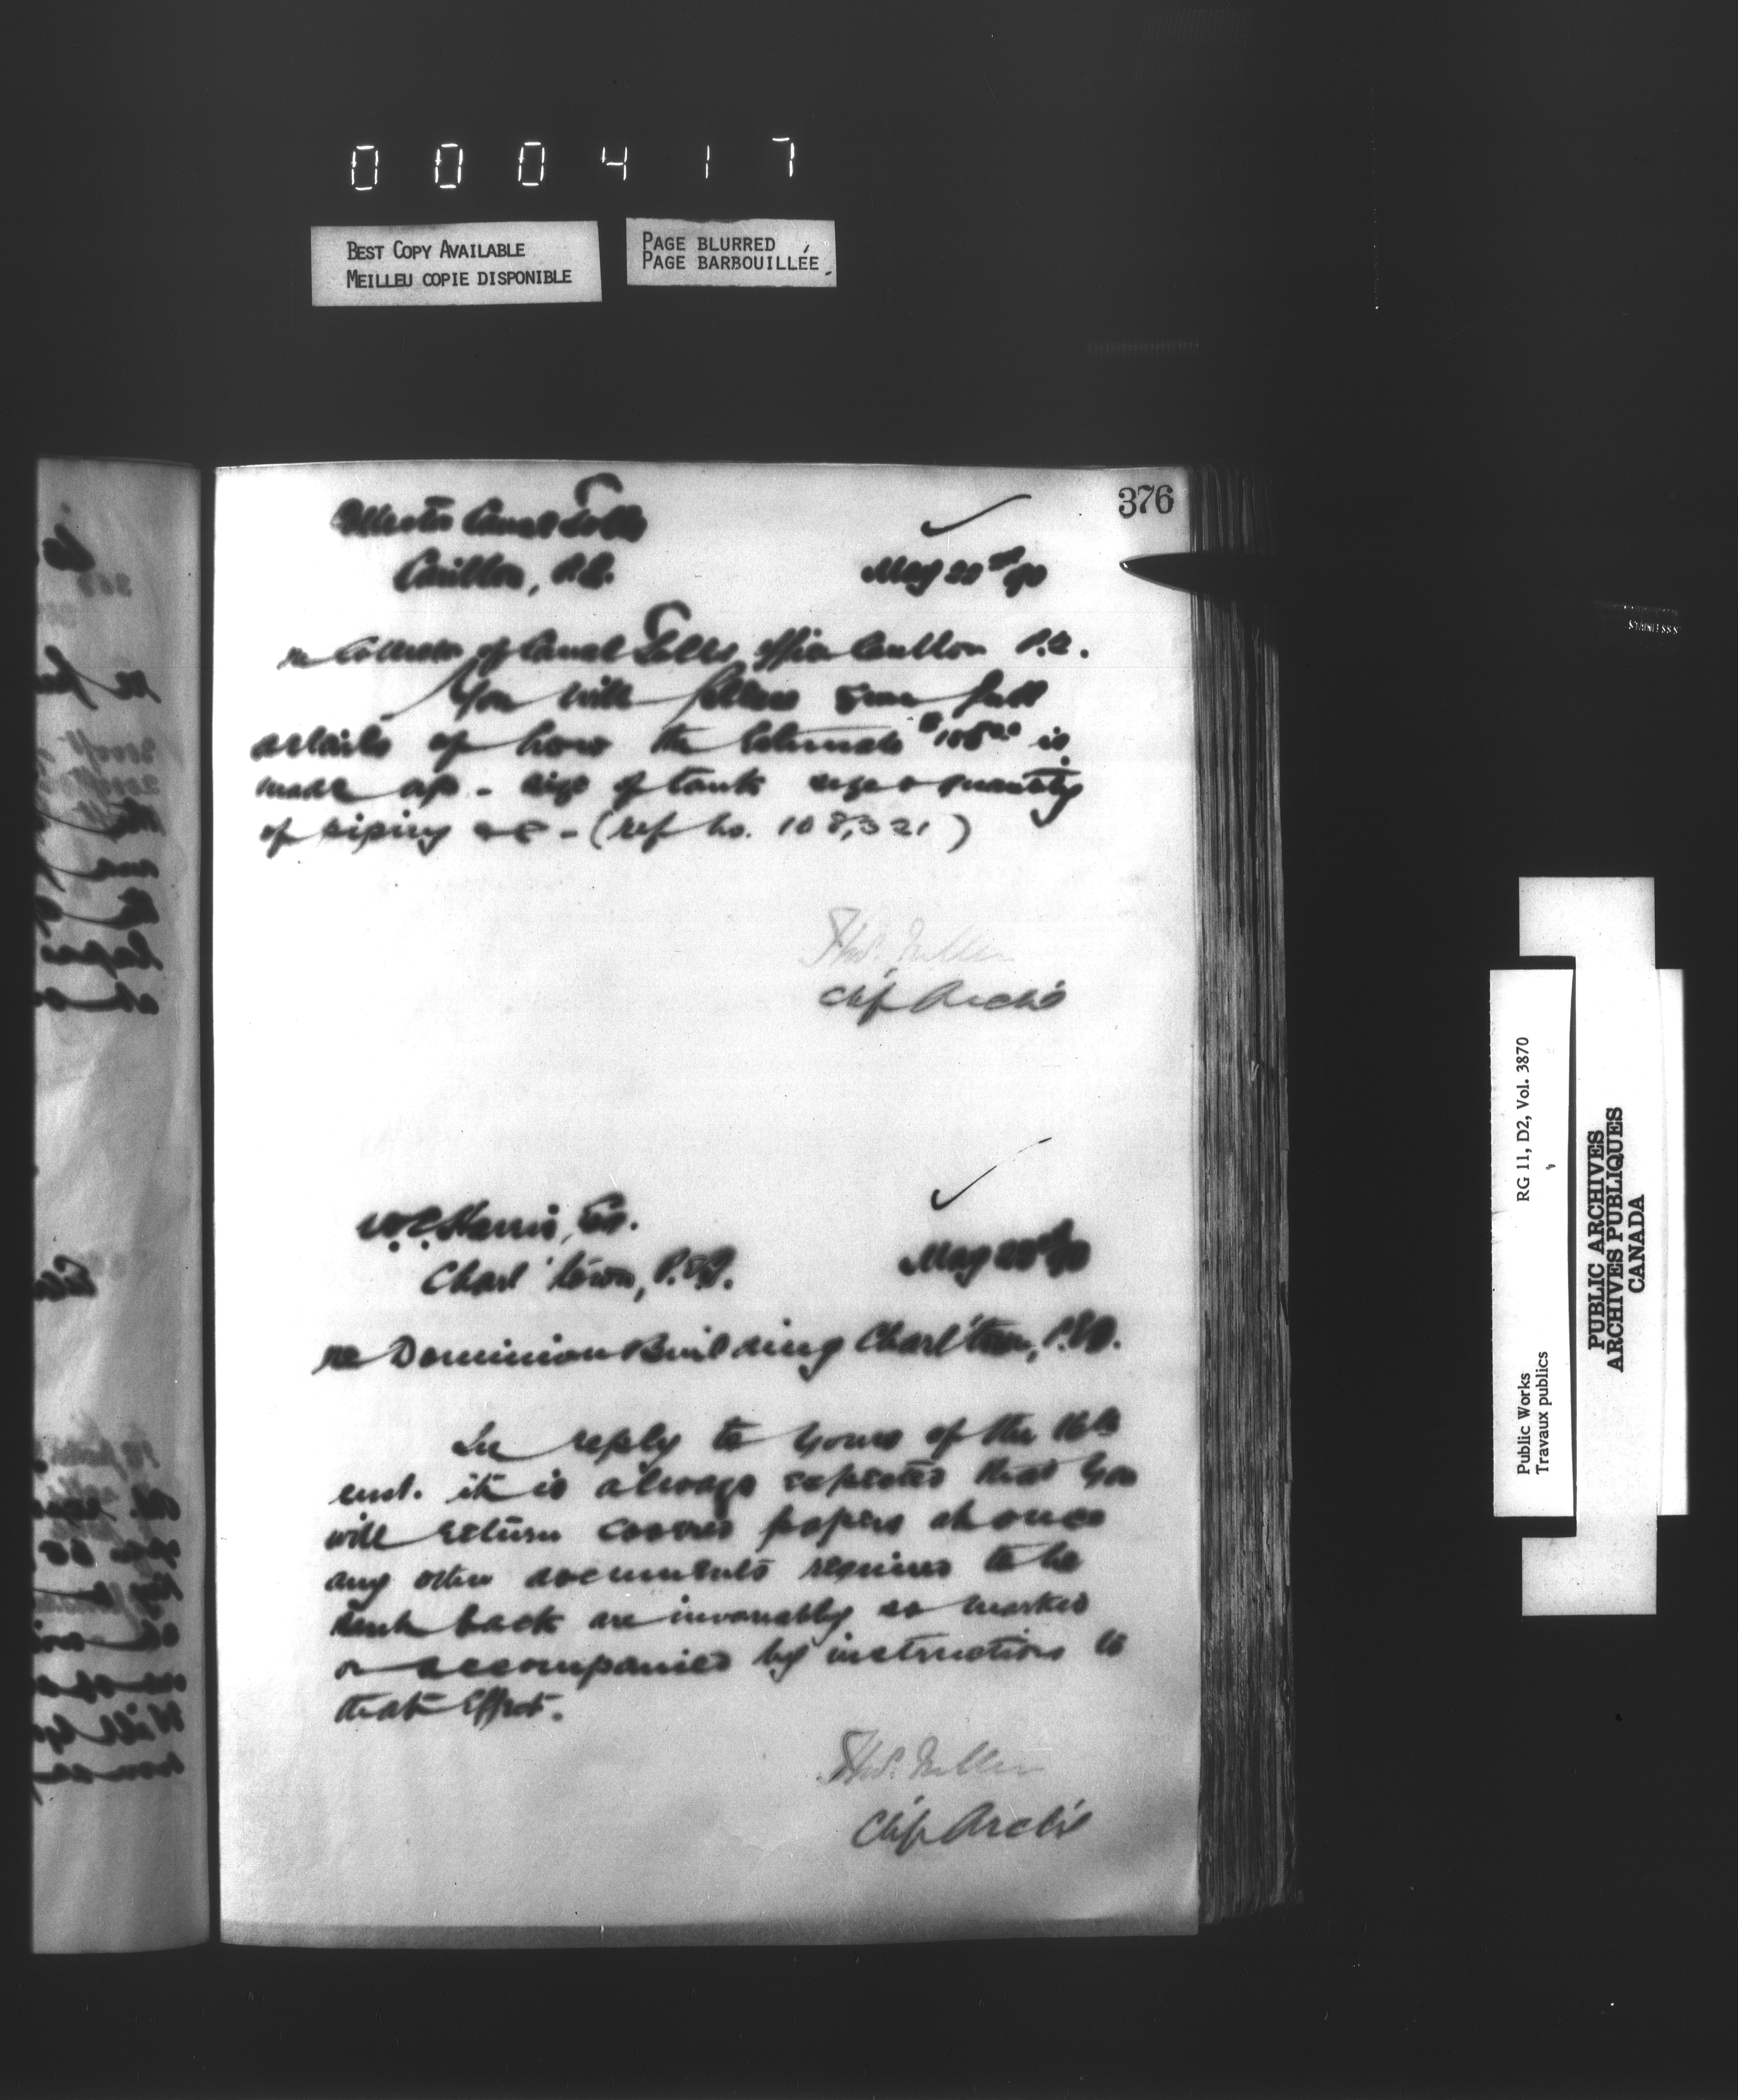 000417
BEST COPY AVAILABLE
MEILLEU COPIE DISPONIBLE
PAGE BLURRED
PAGE BARBOUILLÉE
376
Collector Canal Tolls
Carillon, P.Q.
May 22nd/90
re Collector of Canal Tolls office Carillon P.Q.
You will please give full
details of how the Estimate $108 is
made up - size of tank size & quantity
of piping &c - (ref no. 108,321)
Thos. Fuller
Chf Archt
W.C. Harris, Esq.
Charl'town, P.E.I.
May 22nd/90
re Dominion Building Charl'town, P.E.I.
In reply to yours of the 16th
inst. it is always expected that you
will return papers at once
any other documents required to be
sent back are invariably so marked
or accompanied by instructions to
that effect.
Thos. Fuller
Chf Archt
Public Works
Travaux publics
RG 11, D2, Vol. 3870
PUBLIC ARCHIVES
ARCHIVES PUBLIQUES
CANADA